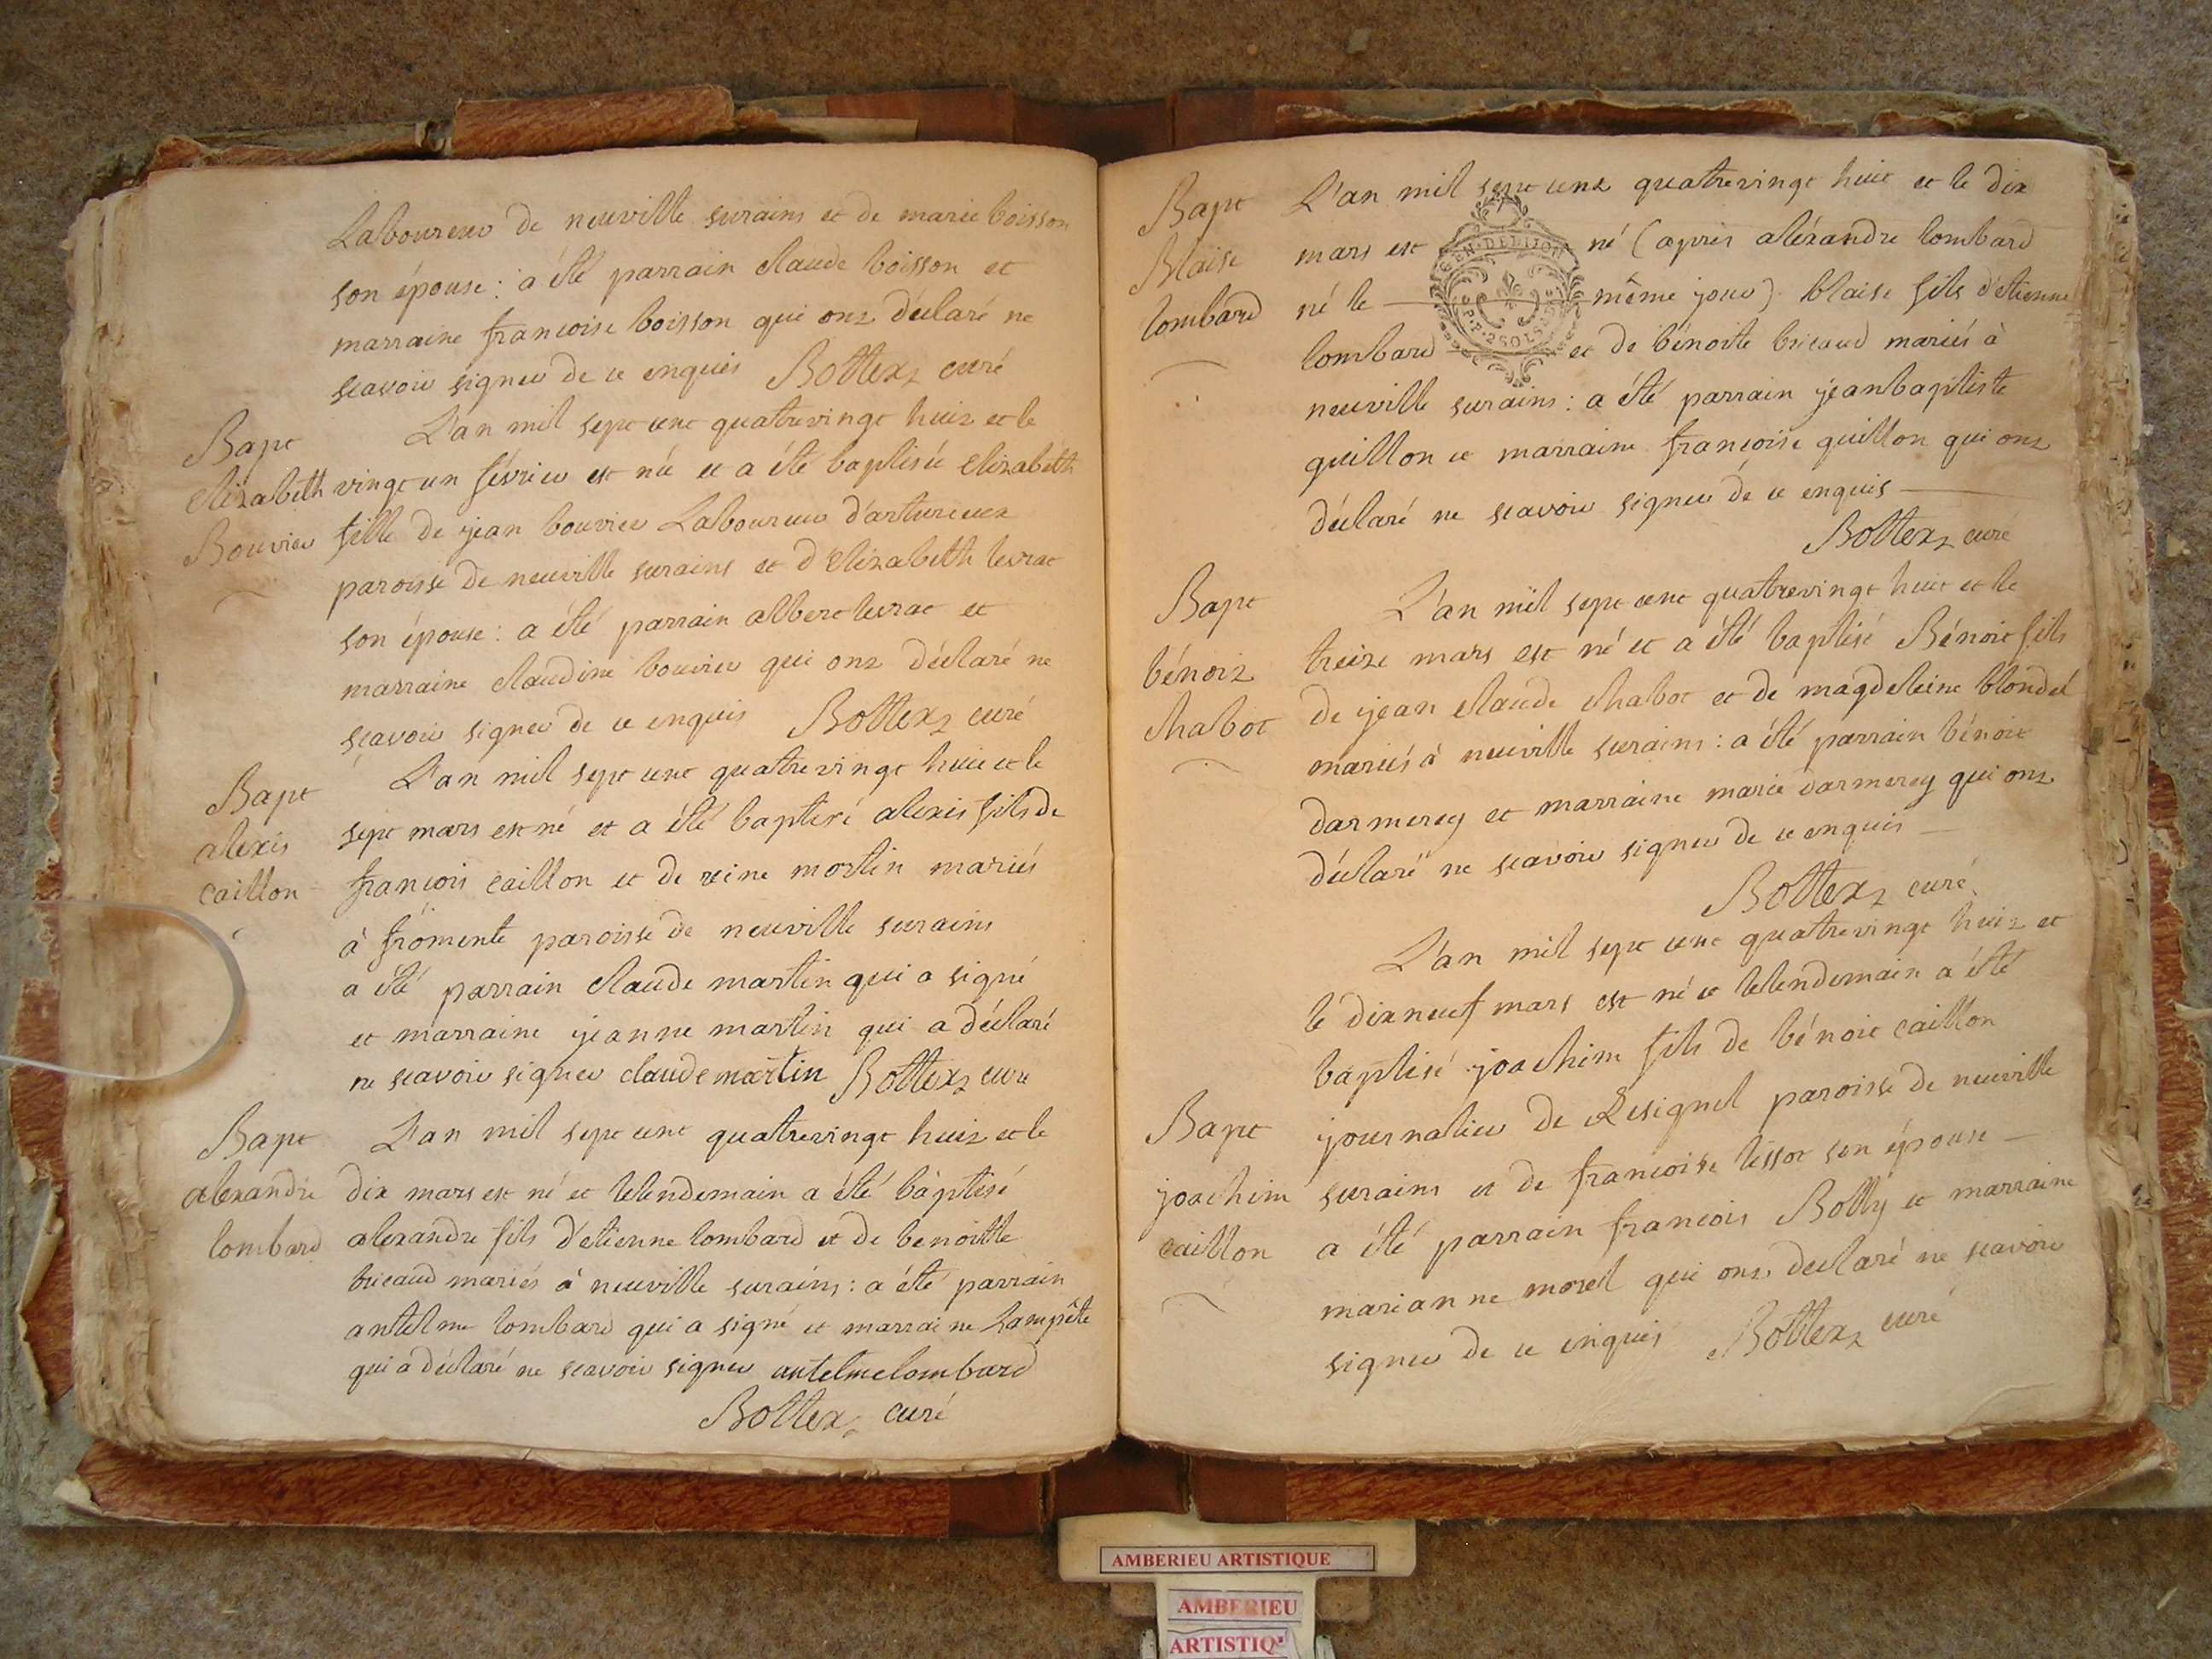 Laboureur de neuville surains et de marie boisson
son épouse : a été parrain claude boisson et
marraine francoise boisson qui ont déclaré ne
scavoir signer de ce enquis Bottex curé
Bapt
elizabeth
Bouvier
L'an mil sept cent quatrevingt huit et le
vingt un février est née et a été baptisée elizabeth
fille de jean bouvier Laboureur d'artureuz
paroisse de neuville surains et d'elizabeth levrat
son épouse : a été parrain albert levrat et
marraine claudine bouvier qui ont déclaré ne
scavoir signer de ce enquis Bottex curé
Bapt
alexis
caillon
L'an mil sept cent quatrevingt huit et le
sept mars est né et a été baptisé alexis fils de
francois caillon et de reine martin mariés
à fromente paroisse de neuville surains
a été parrain claude martin qui a signé
et marraine jeanne martin qui a déclaré
ne scavoir signer claude martin Bottex curé
Bapt
alexandre
lombard
L'an mil sept cent quatrevingt huit et le
dix mars est né et lelendemain a été baptisé
alexandre fils d'etienne lombard et de benoitte
bricaud mariés à neuville surains : a été parrain
antelme lombard qui a signé et marraine Lampêtte
qui a déclaré ne scavoir signer antelmelombard
Bottex curé
Bapt
Blaise
lombard
L'an mil sept cent quatrevingt huit et le dix
mars est né (après aléxandre lombard
né le même jour) blaise fils d'etienne
lombard et de bénoite bricaud mariés à
neuville surains : a été parrain jeanbaptiste
guillon et marraine francoise guillon qui ont
déclaré ne scavoir signer de ce enquis
Bottex curé
GEN. DE DIJON
P.P. 2 SOLS
Bapt
bénoit
chabot
L'an mil sept cent quatrevingt huit et le
treize mars est né et a été baptisé Bénoit fils
de jean claude chabot et de magdeleine blondel
mariés à neuville surains : a été parrain bénoit
darmerey et marraine marie darmerey qui ont
déclaré ne scavoir signer de ce enquis
Bottex curé
Bapt
joachim
caillon
L'an mil sept cent quatrevingt huit et
le dixneuf mars est né et lelendemain a été
baptisé joachim fils de bénoit caillon
journalier de Resignel paroisse de neuville
surains et de francoise tissot son épouse
a été parrain francois Bolly et marraine
marianne morel qui ont déclaré ne scavoir
signer de ce enquis Bottex curé
AMBERIEU ARTISTIQUE
AMBERIEU
ARTISTIQ